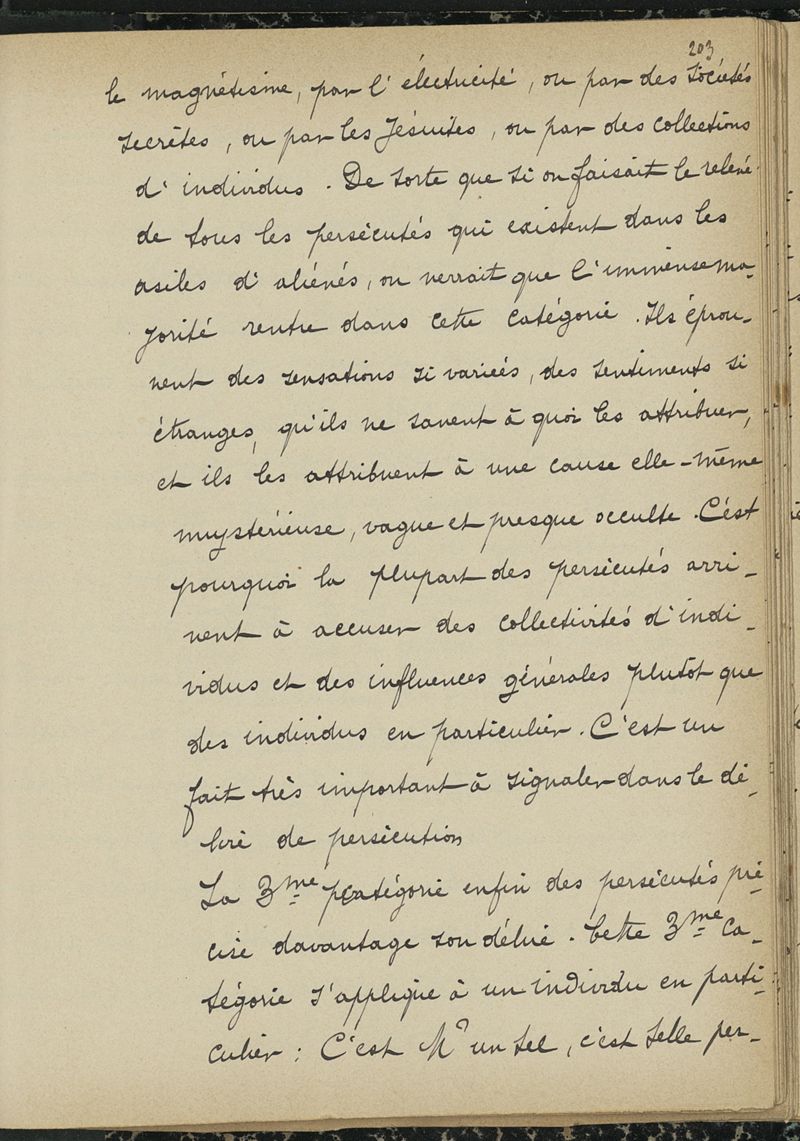 203
le magnétisme, par l'électricité, ou par des sociétés
secrètes, ou par les Jésuites, ou par des collections
d'individus. De sorte que si on faisait le relevé
de tous les persécutés qui existent dans les
asiles d'aliénés, on verrait que l'immense ma-
jorité rentre dans cette catégorie. Ils éprou-
vent des sensations si variées, des sentiments si
étranges, qu'ils ne savent à quoi les attribuer,
et ils les attribuent à une cause elle-même
mystérieuse, vague et presque occulte. C'est
pourquoi la plupart des persécutés arri-
vent à accuser des collectivités d'indi-
vidus et des influences générales plutôt que
des individus en particulier. C'est un
fait très important à signaler dans le dé-
lire de persécution
La 3me catégorie enfin des persécutés pré-
cise davantage son délire. Cette 3me ca-
tégorie s'applique à un individu en parti-
culier : C'est Mr un tel, c'est telle per-